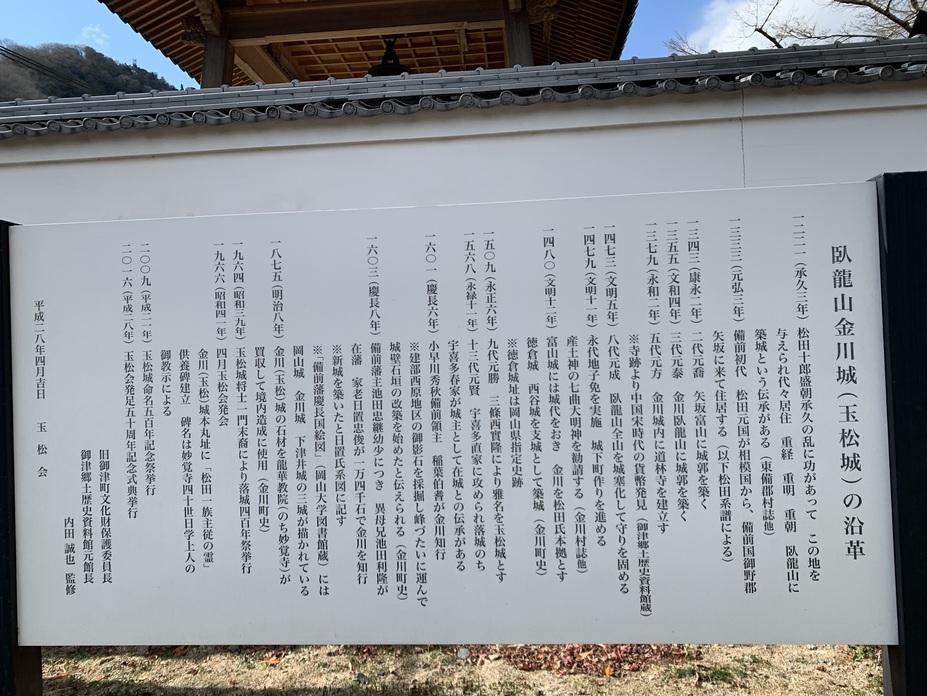 臥龍山金川城(玉松城)の沿革
一二二一(承久三年) 松田十郎盛朝承久の乱に功があって この地を
与えられ代々居住 重経 重明 重朝 臥龍山に
築城という伝承がある(東備郡村誌他)
一三三三(元弘三年) 備前初代 松田元国が相模国から、備前国御野郡
矢坂に来て住居する(以下松田系譜による)
一三四三(康永二年) 二代元喬 矢坂富山に城郭を築く
一三五五(文和四年) 三代元泰 金川臥龍山に城郭を築く
一三七九(永和二年) 五代元方 金川城内に道林寺を建立す
※寺跡より中国宋時代の貨幣発見(御津郷土歴史資料館蔵)
一四七三(文明五年) 八代元成 臥龍山全山を城塞化して守りを固める
一四七九(文明十一年) 永代地子免を実施 城下町作りを進める
産土神の七曲大明神を勧請する(金川村誌他)
一四八〇(文明十二年) 富山城には城代をおき 金川を松田氏本拠とす
徳倉城 西谷城を支城として築城(金川町史)
※徳倉城址は岡山県指定史跡
一五〇九(永正六年) 九代元勝 三條西實隆により雅名を玉松城とす
一五六八(永禄十一年) 十三代元賢 宇喜多直家に攻められ落城のち
宇喜多春家が城主として在城との伝承がある
一六〇一(慶長六年) 小早川秀秋備前領主 稲葉伯耆が金川知行
※建部西原地区の御影石を採掘し峰づたいに運んで
城壁石垣の改築を始めたと伝えられる(金川町史)
一六〇三(慶長八年) 備前藩主池田忠継幼少につき 異母兄池田利隆が
在藩 家老日置忠俊が一万四千石で金川を知行
※新城を築いたと日置氏系図に記す
※「備前藩慶長国絵図」(岡山大学図書館蔵)には
岡山城 金川城 下津井城の三城が描かれている
一八七五(明治八年) 金川(玉松)城の石材を龍華教院(のち妙覚寺)が
買収して境内造成に使用(金川町史)
一九六四(昭和三九年) 玉松城将士一門末裔により落城四百年祭挙行
一九六六(昭和四一年) 四月玉松会発会
金川(玉松)城本丸址に「松田一族主従の霊」
供養碑建立 碑名は妙覚寺四十世日学上人の
御教示による
二〇〇九(平成二一年) 玉松城命名五百年記念祭挙行
二〇一六(平成二八年) 玉松会発足五十周年記念式典挙行
旧御津町文化財保護委員長
御津郷土歴史資料館元館長
内田 誠也 監修
平成二八年四月吉日 玉松会